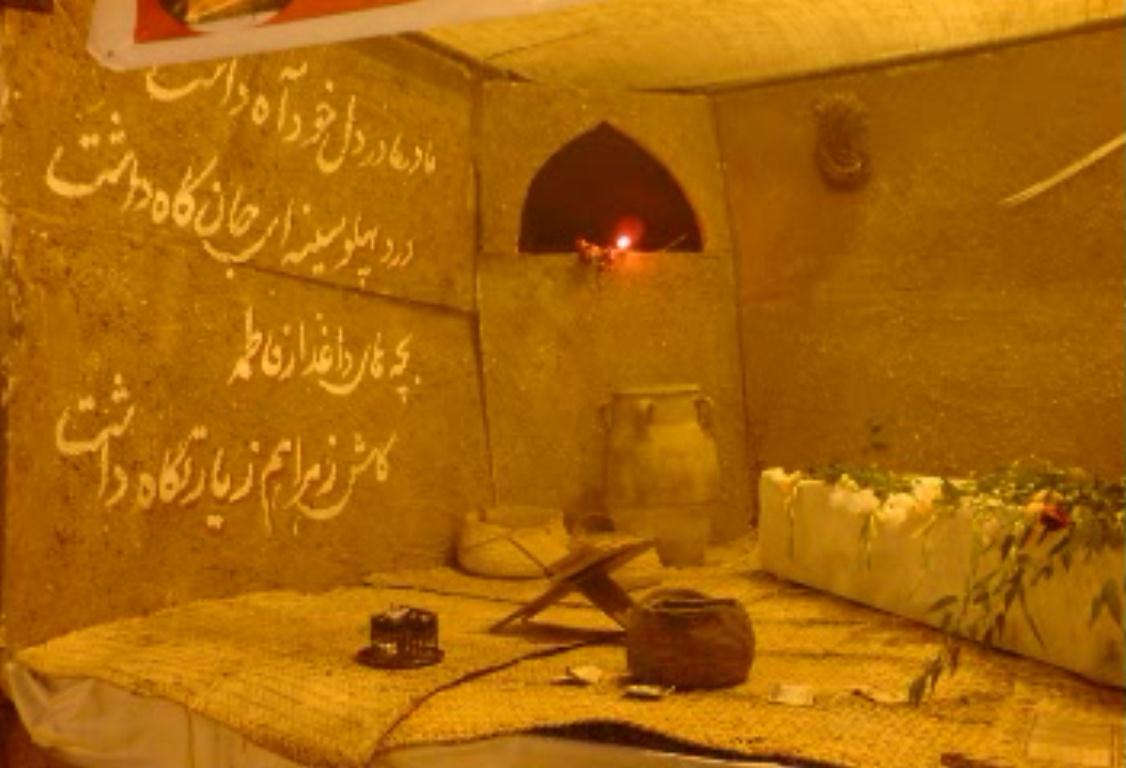 مادرما در دل خود آه داشت
درد پهلو سینه ای جان کاه داشت
بچه های داغدار فاطمه
کاش زهرا هم زیارتگاه داشت